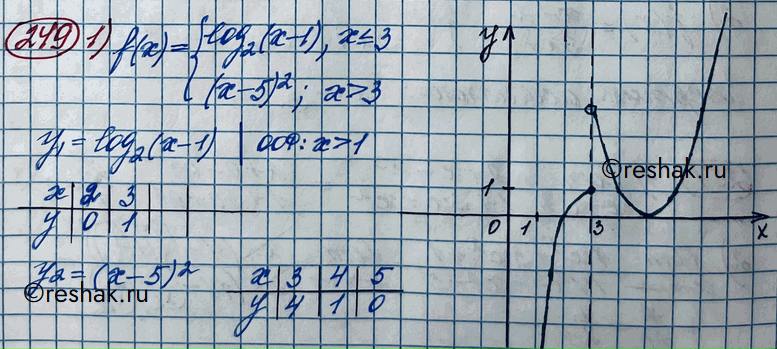 249 1) f(x) = { log₂(x-1), x ≤ 3
(x-5)²; x > 3
y₁ = log₂(x-1) | ООФ: x > 1
x | 2 | 3
y | 0 | 1
y₂ = (x-5)²
x | 3 | 4 | 5
y | 4 | 1 | 0
©reshak.ru
y
©reshak.ru
1
0 1 3 x